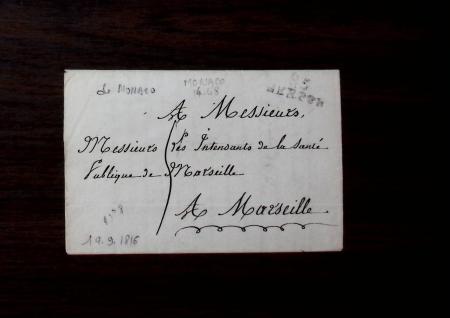 de MONACO
MONACO
A Messieurs,
Messieurs Les Intendants de la santé
Publique de Marseille
A Marseille
19.9.1816